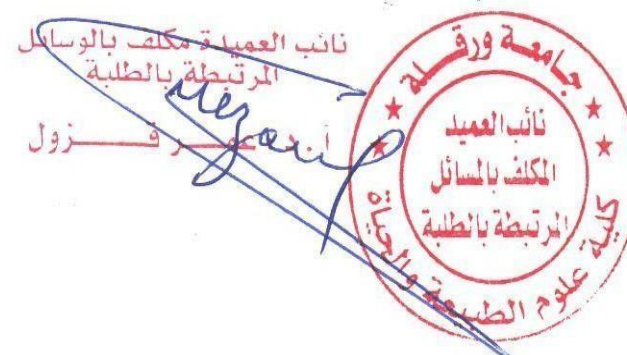 نائب العميدة مكلف بالوسائل
المرتبطة بالطلبة
زول
جامعة ورقلة
نائب العميد
المكلف بالمسائل
المرتبطة بالطلبة
كلية علوم الطبيعة والحياة